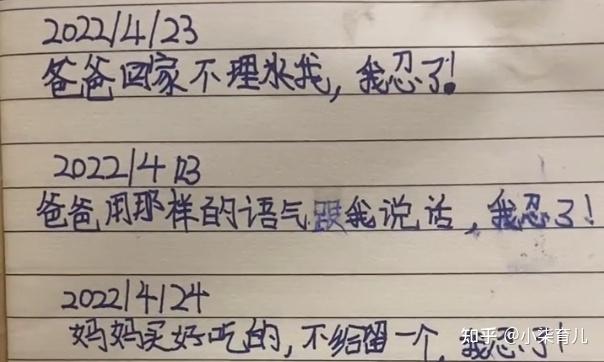 2022/4/23
爸爸回家不理水我，我忍了！
2022/4/23
爸爸用那样的语气跟我说话，我忍了！
2022/4/24
妈妈买好吃的，不给留一个，我忍
知乎 @小柒育儿